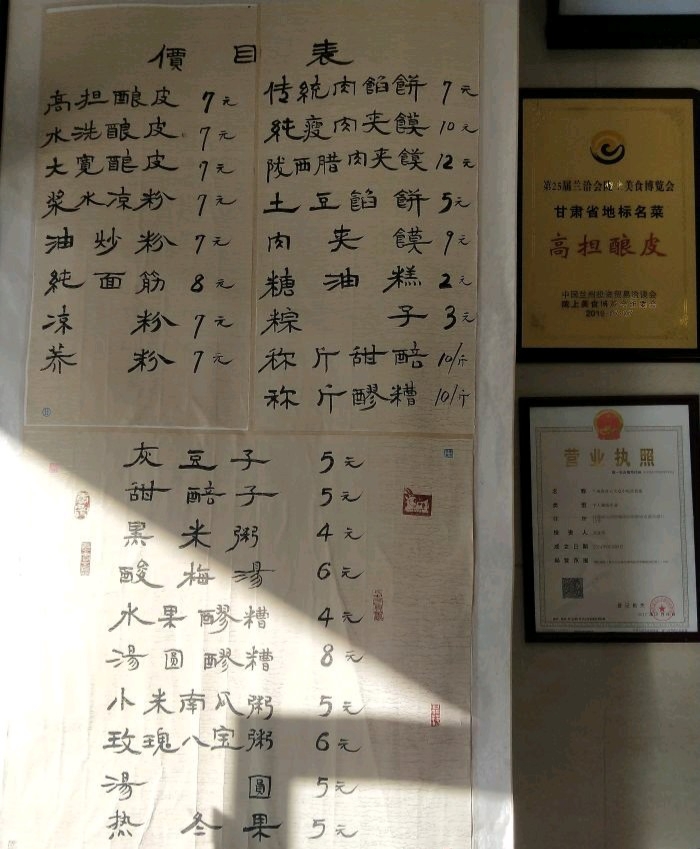 價目表
高担酿皮 7元
水洗酿皮 7元
大寬酿皮 7元
浆水凉粉 7元
油炒粉 7元
純面筋 8元
凉粉 7元
荞粉 7元
传統肉餡餅 7元
純瘦肉夹饃 10元
陇西腊肉夹饃 12元
土豆餡餅 5元
肉夹饃 9元
糖油糕 2元
粽子 3元
称斤甜醅 10/斤
称斤醪糟 10/斤
灰豆子 5元
甜醅子 5元
黑米粥 4元
酸梅湯 6元
水果醪糟 4元
湯圓醪糟 8元
小米南瓜粥 5元
玫瑰八宝粥 6元
湯圓 5元
热冬果 5元
第25届兰洽会陇上美食博览会
甘肃省地标名菜
高担酿皮
中国兰州投资贸易洽谈会
营业执照
名称
类型
住所
成立日期
经营范围
登记机关